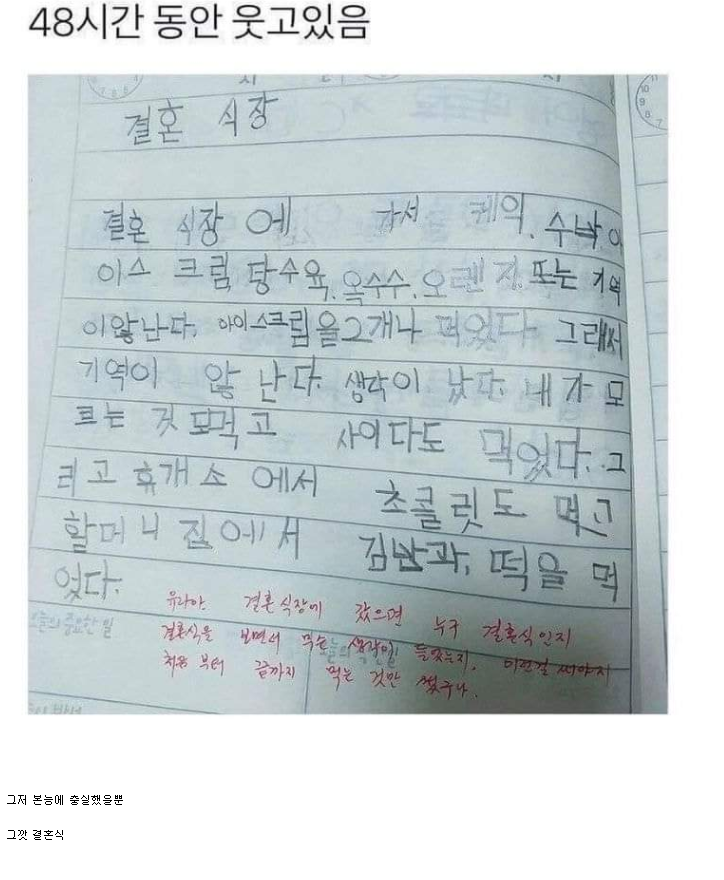 48시간 동안 웃고있음
결혼 식장
결혼 식장 에 가서 케익, 수박 아
이스 크림 탕수육, 옥수수, 오렌 지, 또는 기역
이않난다, 아이스크림을2개나 먹었다. 그래서
기역이 않 난다. 생각이 났다. 내가 모
르는 것 도먹고 사이다도 먹었다. 그
리고 휴개소 에서 초콜릿도 먹고
할머니 집에서 김밥과, 떡을 먹
었다.
유라야. 결혼식장에 갔으면 누구 결혼식인지
결혼식을 보면서 무슨 생각이 들었는지. 이런걸 써야지
처음 부터 끝까지 먹는 것만 썼구나.
오늘의 중요한 일
그저 본능에 충실했을뿐
그깟 결혼식